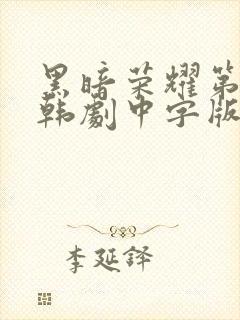 黑暗荣耀第
韩劇中字版
李延铎